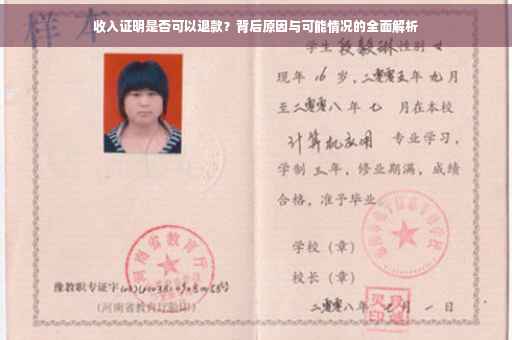 收入证明是否可以退款？背后原因与可能情况的全面解析
样本
学生 段毅琳 性别 女
现年 16 岁，二零零五年 九月
至二零零八年 七 月在本校
计算机应用 专业学习，
学制 三年，修业期满，成绩
合格，准予毕业
学校（章）
校长（章）
二零零八年 七 月 一 日
河南省教育厅
豫教职专证字
（河南省教育厅验印）